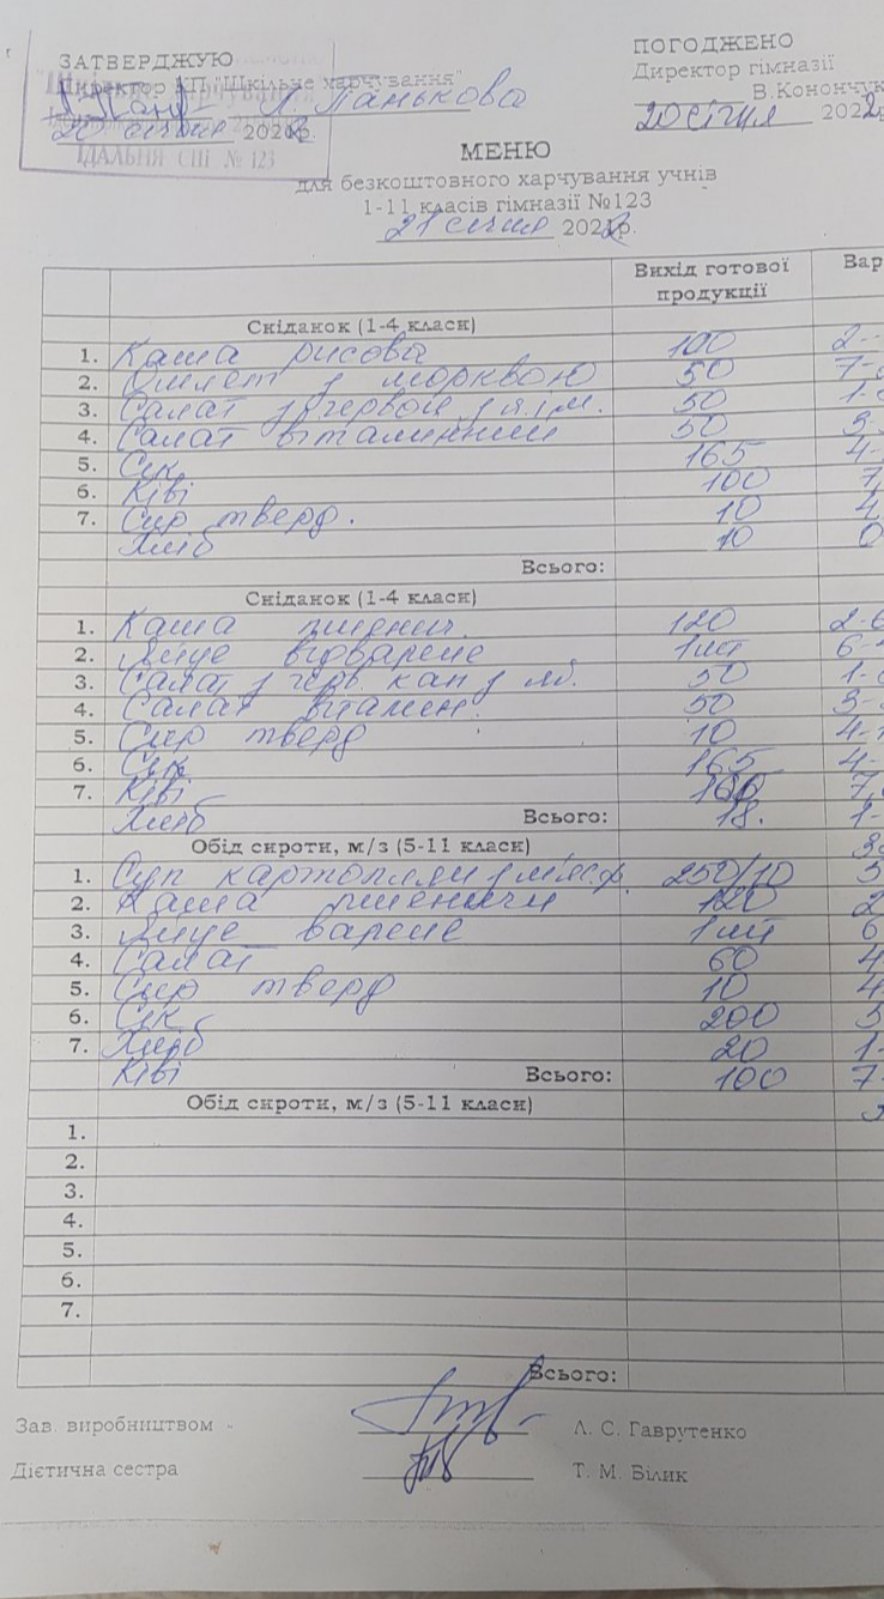 ЗАТВЕРДЖУЮ
Директор КП "Шкільне харчування"
Л Панькова
20 січня 2022р.
ЇДАЛЬНЯ СШ № 123
ПОГОДЖЕНО
Директор гімназії
В.Конончук
20 січня 2022
МЕНЮ
для безкоштовного харчування учнів
1-11 класів гімназії №123
21 січня 2022р.
Вихід готової продукції Вар
Сніданок (1-4 класи)
1. Каша рисова 100 2-
2. Омлет з морквою 50 7-
3. Салат з червон. 50 1-
4. Салат вітамінний 50 3-
5. Сік 165 4-
6. Ківі 100 7,
7. Сир тверд. 10 4
Хліб 10 0
Всього:
Сніданок (1-4 класи)
1. Каша пшенич. 120 2-6
2. Яйце відварене 1шт 6-
3. Салат з черв. кап з яб. 50 1-
4. Салат вітамін. 50 3-
5. Сир тверд 10 4-1
6. Сік 165 4-
7. Ківі 100 7,
Хліб Всього: 18. 1-
Обід сироти, м/з (5-11 класи)
1. Суп картопляний з м'яс.ф. 250/10 5
2. Каша пшенична 120 2
3. Яйце варене 1шт 6
4. Салат 60 4
5. Сир тверд 10 4
6. Сік 200 5
7. Хліб 20 1-
Ківі Всього: 100 7-
Обід сироти, м/з (5-11 класи)
1.
2.
3.
4.
5.
6.
7.
Всього:
Зав. виробництвом Л. С. Гаврутенко
Дієтична сестра Т. М. Білик